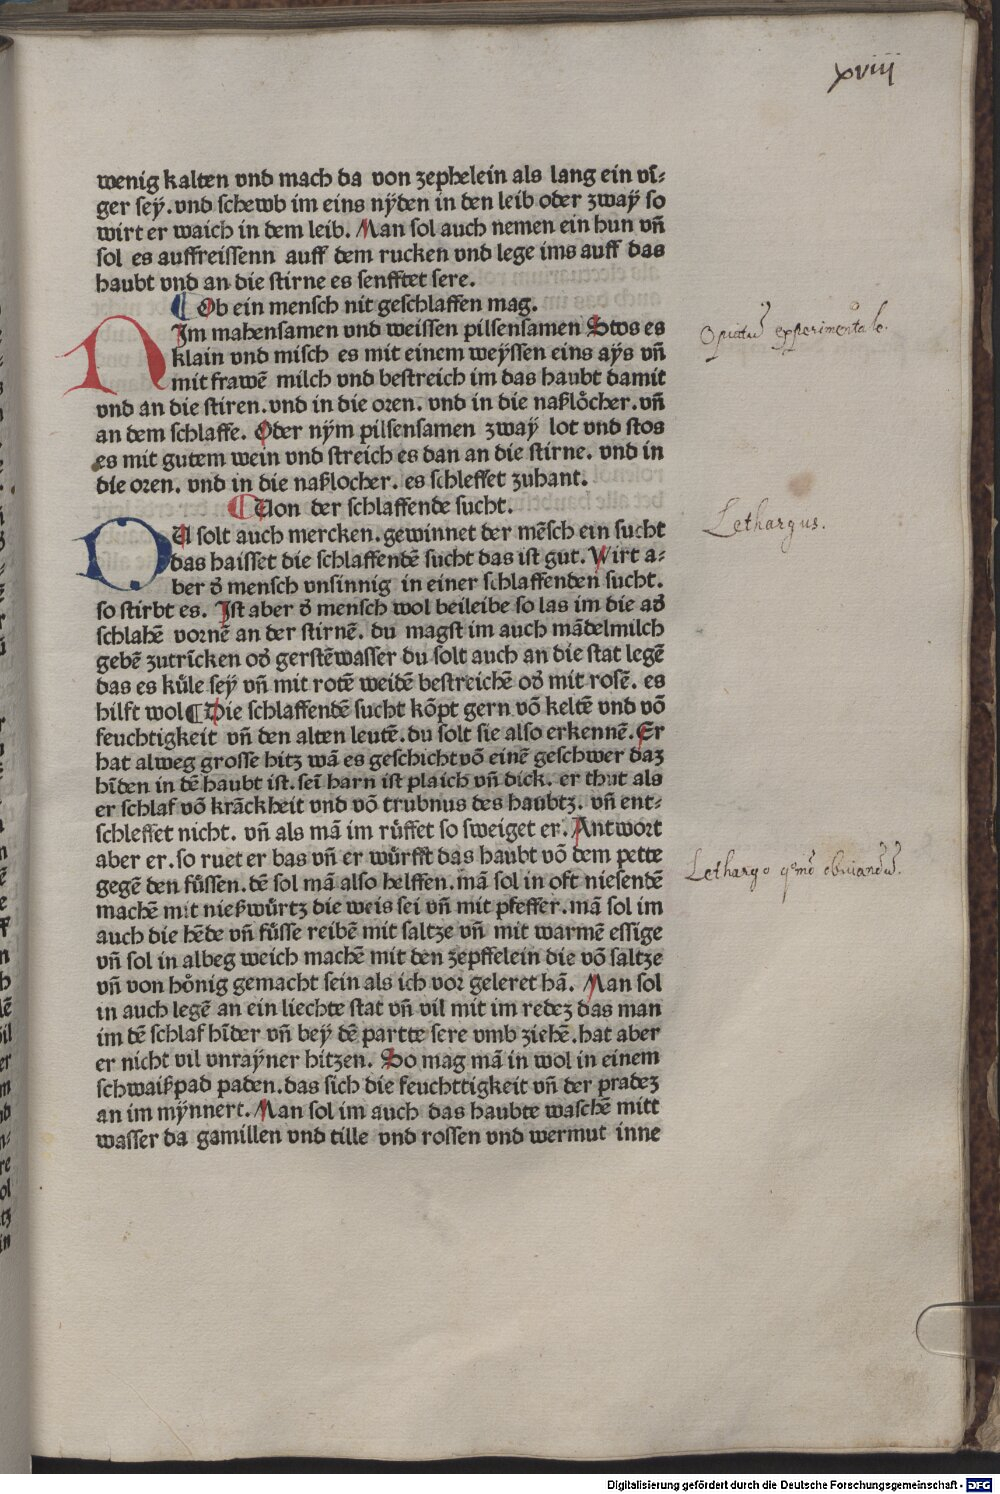 xviij
wenig kalten vnd mach da von zephelein als lang ein vī⸗
ger sey. vnd schewb im eins nÿden in den leib oder zwaÿ so
wirt er waich in dem leib. Man sol auch nemen ein hun vn̄
sol es auffreissenn auff dem rucken vnd lege ims auff das
haubt vnd an die stirne es senfftet sere.
¶ Ob ein mensch nit geschlaffen mag.
NIm mahensamen vnd weissen pilsensamen Stos es
klain vnd misch es mit einem weyssen eins ays vn̄
mit frawē milch vnd bestreich im das haubt damit
vnd an die stiren. vnd in die oren. vnd in die naßloͤcher. vn̄
an dem schlaffe. Oder nym pilsensamen zwaÿ lot vnd stos
es mit gutem wein vnd streich es dan an die stirne. vnd in
die oren. vnd in die naßlocher. es schleffet zuhant.
¶ Uon der schlaffende sucht.
DU solt auch mercken. gewinnet der mēsch ein sucht
das haisset die schlaffendē sucht das ist gut. Wirt a⸗
ber d̕ mensch vnsinnig in einer schlaffenden sucht.
so stirbt es. Ist aber d̕ mensch wol beileibe so las im die ad̕
schlahē vornē an der stirnē. du magst im auch mādelmilch
gebē zutrīcken od̕ gerstēwasser du solt auch an die stat legē
das es kuͤle sey vn̄ mit rotē weidē bestreichē od̕ mit rosē. es
hilft wol ¶ Die schlaffendē sucht kōpt gern vō keltē vnd vō
feuchtigkeit vn̄ den alten leutē. du solt sie also erkennē. Er
hat alweg grosse hitz wā es geschicht vō einē geschwer daz
hīden in dē haubt ist. seī harn ist plaich vn̄ dick. er thut als
er schlaf vō krāckheit vnd vō trubnus des haubtz. vn̄ ent⸗
schleffet nicht. vn̄ als mā im ruͤffet so sweiget er. Antwort
aber er. so ruet er bas vn̄ er wuͤrfft das haubt vō dem pette
gegē den fuͤssen. dē sol mā also helffen. mā sol in oft niesendē
machē mit nießwuͤrtz die weis sei vn̄ mit pfeffer. mā sol im
auch die hēde vn̄ fuͤsse reibē mit saltze vn̄ mit warmē essige
vn̄ sol in albeg weich machē mit den zepffelein die vō saltze
vn̄ von hoͤnig gemacht sein als ich vor geleret hā. Man sol
in auch legē an ein liechte stat vn̄ vil mit im redez das man
im dē schlaf hīder vn̄ beÿ dē partte sere vmb ziehē. hat aber
er nicht vil vnraÿner hitzen. So mag mā in wol in einem
schwaißpad paden. das sich die feuchttigkeit vn̄ der pradez
an im mÿnnert. Man sol im auch das haubte waschē mitt
wasser da gamillen vnd tille vnd rossen vnd wermut inne
Opiatū experimentale.
Lethargus.
Lethargo qmō obuiandū.
Digitalisierung gefördert durch die Deutsche Forschungsgemeinschaft - DFG